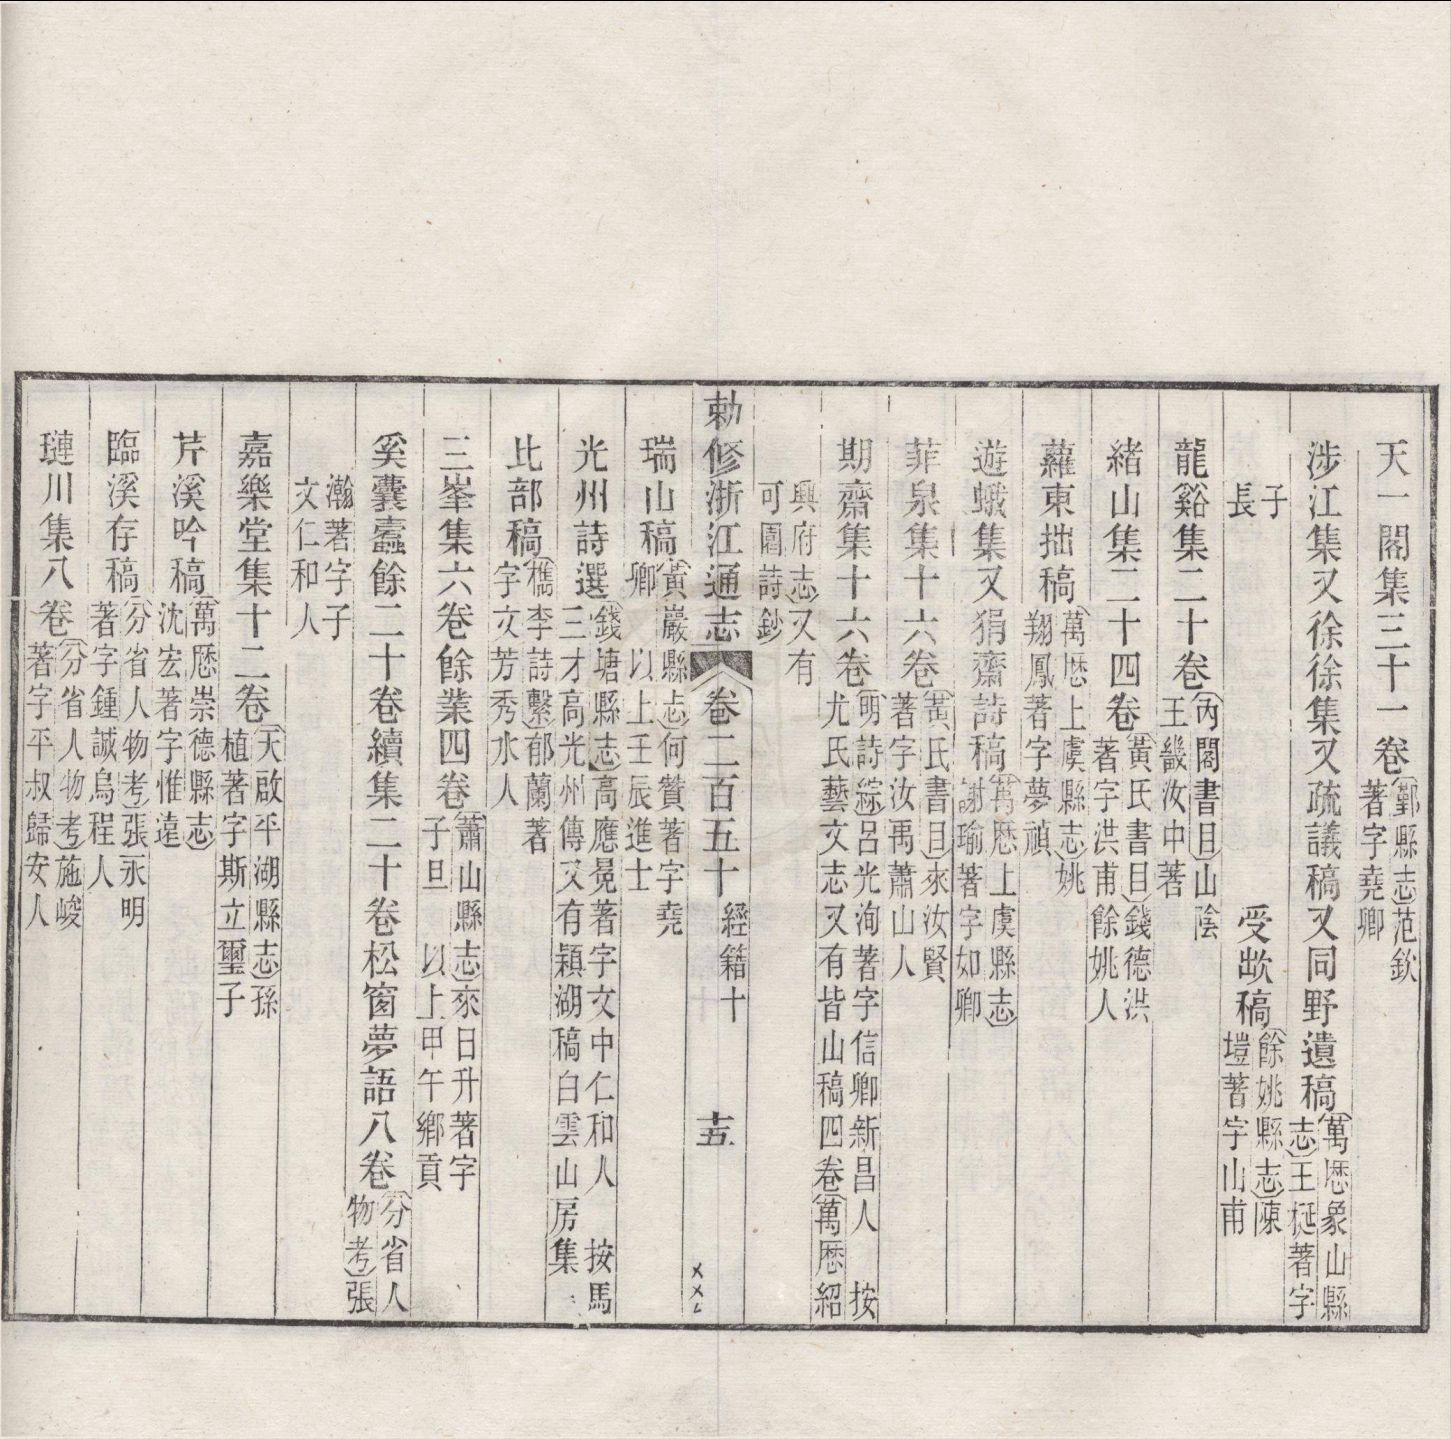 天一閣集三十一卷鄞縣志范欽著字堯卿
涉江集又徐徐集又疏議稿又同野遺稿萬厯象山縣志王梴著字
子長 受欪稿餘姚縣志陳塏著字山甫
龍谿集二十卷內閣書目山陰王畿汝中著
緒山集二十四卷黃氏書目錢德洪著字洪甫餘姚人
蘿東拙稿萬厯上虞縣志姚翔鳳著字夢禎
遊蛾集又狷齋詩稿萬厯上虞縣志謝瑜著字如卿
菲泉集十六卷黃氏書目來汝賢著字汝禹蕭山人
期齋集十六卷明詩綜呂光洵著字信卿新昌人 按尤氏藝文志又有皆山稿四卷萬厯紹
興府志又有可園詩鈔
勅修浙江通志 卷二百五十 經籍十 十五
瑞山稿黃巖縣志何贊著字堯卿 以上壬辰進士
光州詩選錢塘縣志高應冕著字文中仁和人 按馬三才高光州傳又有潁湖稿白雲山房集
比部稿檇李詩繫郁蘭著字文芳秀水人
三峯集六卷餘業四卷蕭山縣志來日升著字子旦 以上甲午鄉貢
奚囊蠹餘二十卷續集二十卷松窗夢語八卷分省人物考張
瀚著字子文仁和人
嘉樂堂集十二卷天啟平湖縣志孫植著字斯立璽子
芹溪吟稿萬厯崇德縣志沈宏著字惟遠
臨溪存稿分省人物考張永明著字鍾誠烏程人
璉川集八卷分省人物考施峻著字平叔歸安人